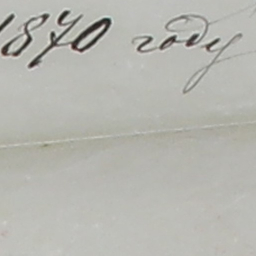 1870 году